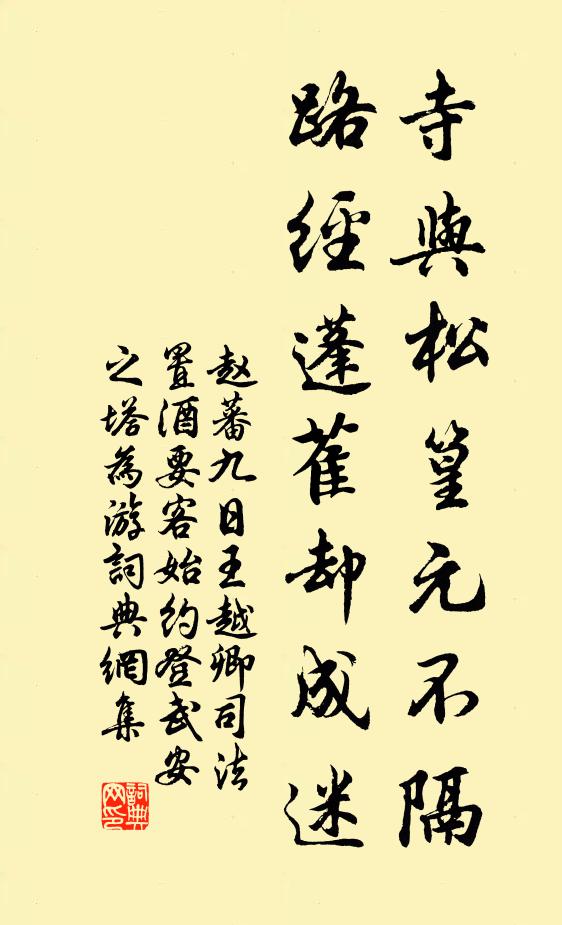 寺與松篁元不隔
路經蓬藋却成迷
赵蕃九日王越卿司法
置酒要客始约登武安
之塔為游詞典網集
詞典网印